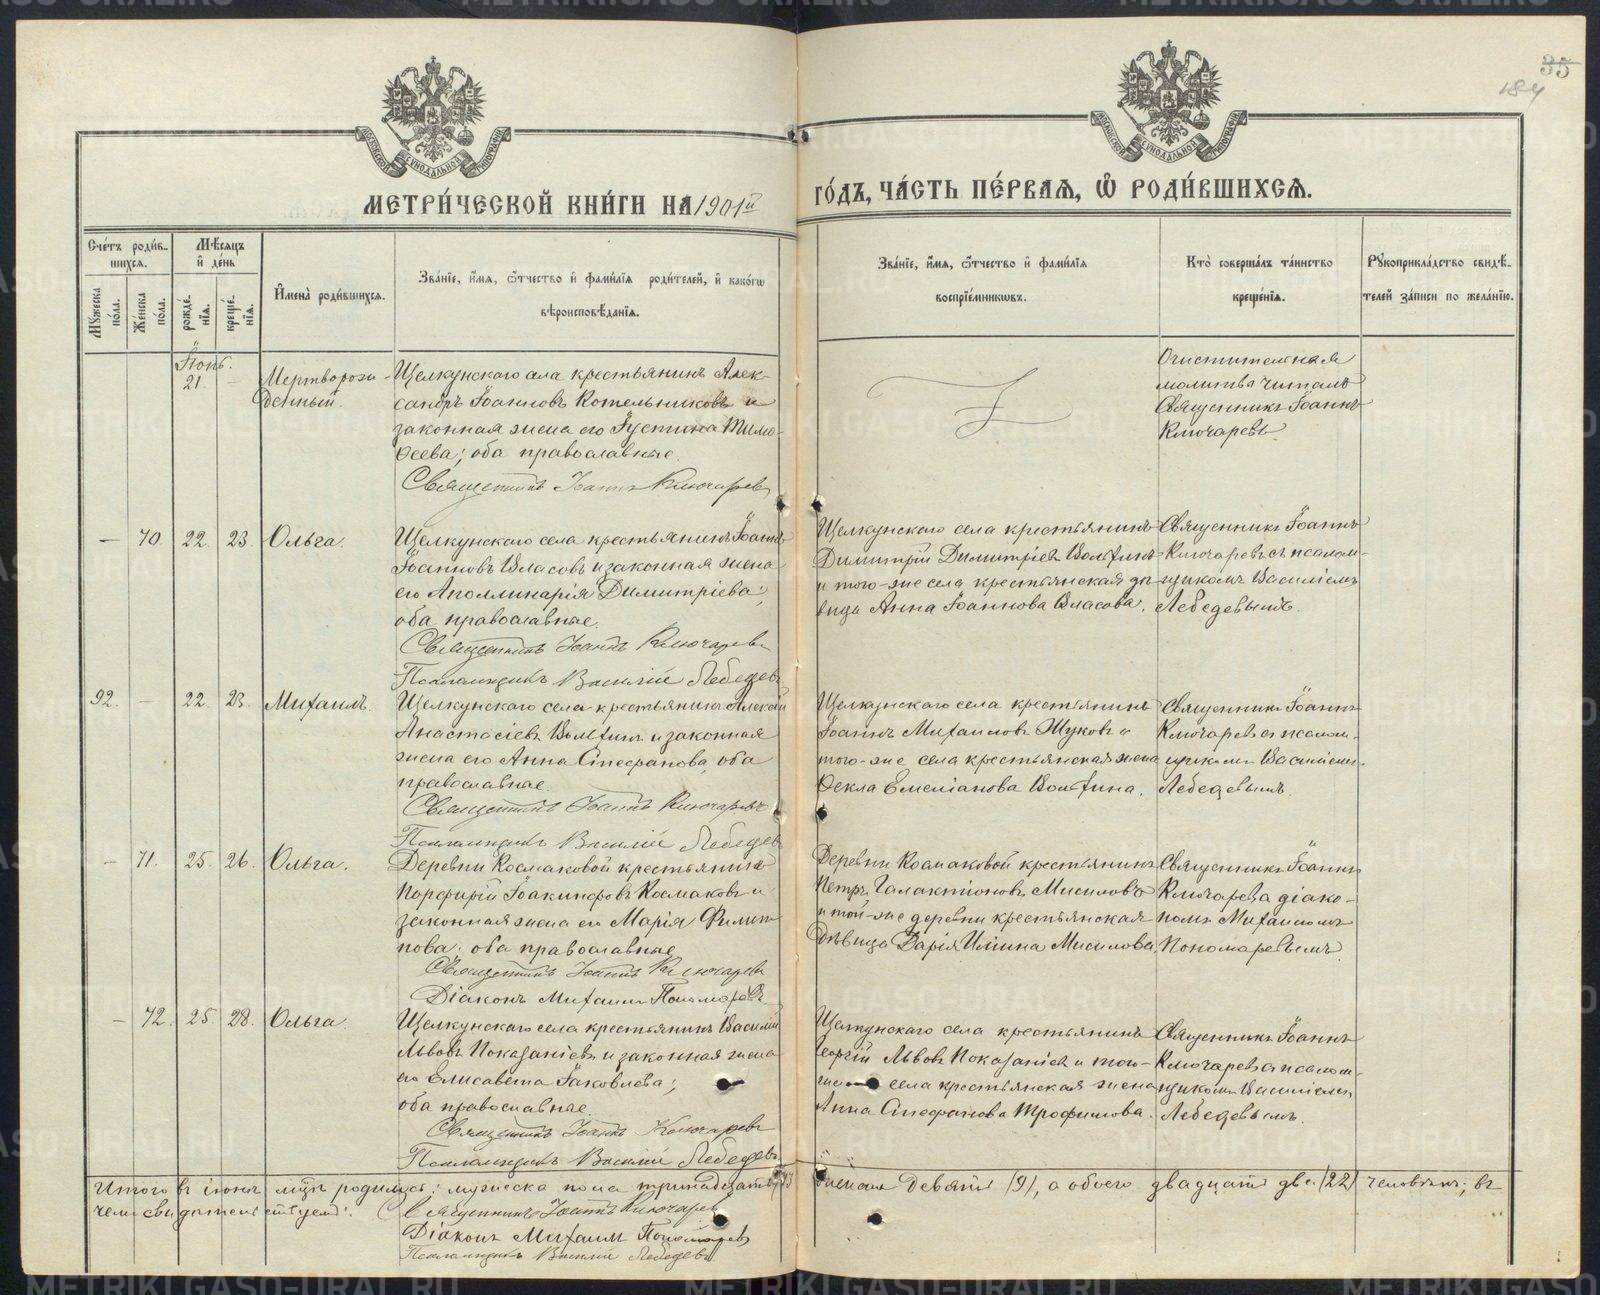 35
184
МЕТРИ́ЧЕСКОЙ КНИ́ГИ НА 1901й ГО́ДЪ, ЧА́СТЬ ПЕ́РВАЯ, Ѿ РОДИ́ВШИХСЯ.
Сче́тъ роди́в-
шихся.
Мѣ́сяцъ
и҆ де́нь
Мꙋ́жеска по́ла.
Же́нска по́ла.
рожде́-
нїя.
креще́-
нїя.
И҆мена̀ роди́вшихся.
Зва́нїе, и҆́мя, ѻ҆́тчество и҆ фами́лїя роди́телей, и҆ како́гѡ
вѣроисповѣ́данїя.
Зва́нїе, и҆́мя, ѻ҆́тчество и҆ фами́лїя
воспрїе́мниковъ.
Кто̀ соверша́лъ та́инство
креще́нїя.
Рꙋкоприкла́дство свидѣ́-
телей за́писи по жела́нїю.
Іюнь.
21 —
Мертворож-
денный.
Щелкунскаго села крестьянинъ Алек-
сандръ Іоанновъ Котельниковъ и
законная жена его Іустина Тимо-
ѳеева; оба православные.
Священникъ Іоаннъ Ключаревъ
Очистительная
молитва читалъ
Священникъ Іоаннъ
Ключаревъ.
— 70. 22. 23. Ольга.
Щелкунскаго села крестьянинъ Іоаннъ
Іоанновъ Власовъ и законная жена
его Аполлинарія Димитріева;
оба православные.
Священникъ Іоаннъ Ключаревъ
Псаломщикъ Василій Лебедевъ
Щелкунскаго села крестьянинъ
Димитрій Димитріевъ Вольхинъ
и того-же села крестьянская дѣ-
вица Анна Іоаннова Власова.
Священникъ Іоаннъ
Ключаревъ съ псалом-
щикомъ Василіемъ
Лебедевымъ.
92. — 22. 23. Михаилъ.
Щелкунскаго села крестьянинъ Алексѣй
Анастасіевъ Вольхинъ и законная
жена его Анна Стефанова, оба
православные.
Священникъ Іоаннъ Ключаревъ
Псаломщикъ Василій Лебедевъ
Щелкунскаго села крестьянинъ
Іоаннъ Михаиловъ Жуковъ и
того-же села крестьянская жена
Ѳекла Емеліанова Вольхина.
Священникъ Іоаннъ
Ключаревъ съ псалом-
щикомъ Василіемъ
Лебедевымъ.
— 71. 25. 26. Ольга.
Деревни Космаковой крестьянинъ
Порфирій Іоакинфовъ Космаковъ и
законная жена его Марія Филип-
пова; оба православные
Священникъ Іоаннъ Ключаревъ
Діаконъ Михаилъ Пономаревъ
Деревни Космаковой крестьянинъ
Петръ Галактіоновъ Мисиловъ
и той-же деревни крестьянская
дѣвица Дарія Ильина Мисилова.
Священникъ Іоаннъ
Ключаревъ съ діако-
номъ Михаиломъ
Пономаревымъ.
— 72. 25. 28. Ольга.
Щелкунскаго села крестьянинъ Василій
Львовъ Показаніевъ и законная жена
его Елисавета Іаковлева;
оба православные.
Священникъ Іоаннъ Ключаревъ
Псаломщикъ Василій Лебедевъ
Щелкунскаго села крестьянинъ
Георгій Львовъ Показаніевъ и того-
же села крестьянская жена
Анна Стефанова Трофимова.
Священникъ Іоаннъ
Ключаревъ съ псалом-
щикомъ Василіемъ
Лебедевымъ.
Итого въ іюнѣ мѣсяцѣ родилось: мужеска пола тринадцать /13/ женска девять /9/, а обоего двадцать два /22/ человѣкъ; въ
чемъ свидѣтельствуемъ: Священникъ Іоаннъ Ключаревъ
Діаконъ Михаилъ Пономаревъ
Псаломщикъ Василій Лебедевъ
METRIKI.GASO-URAL.RU